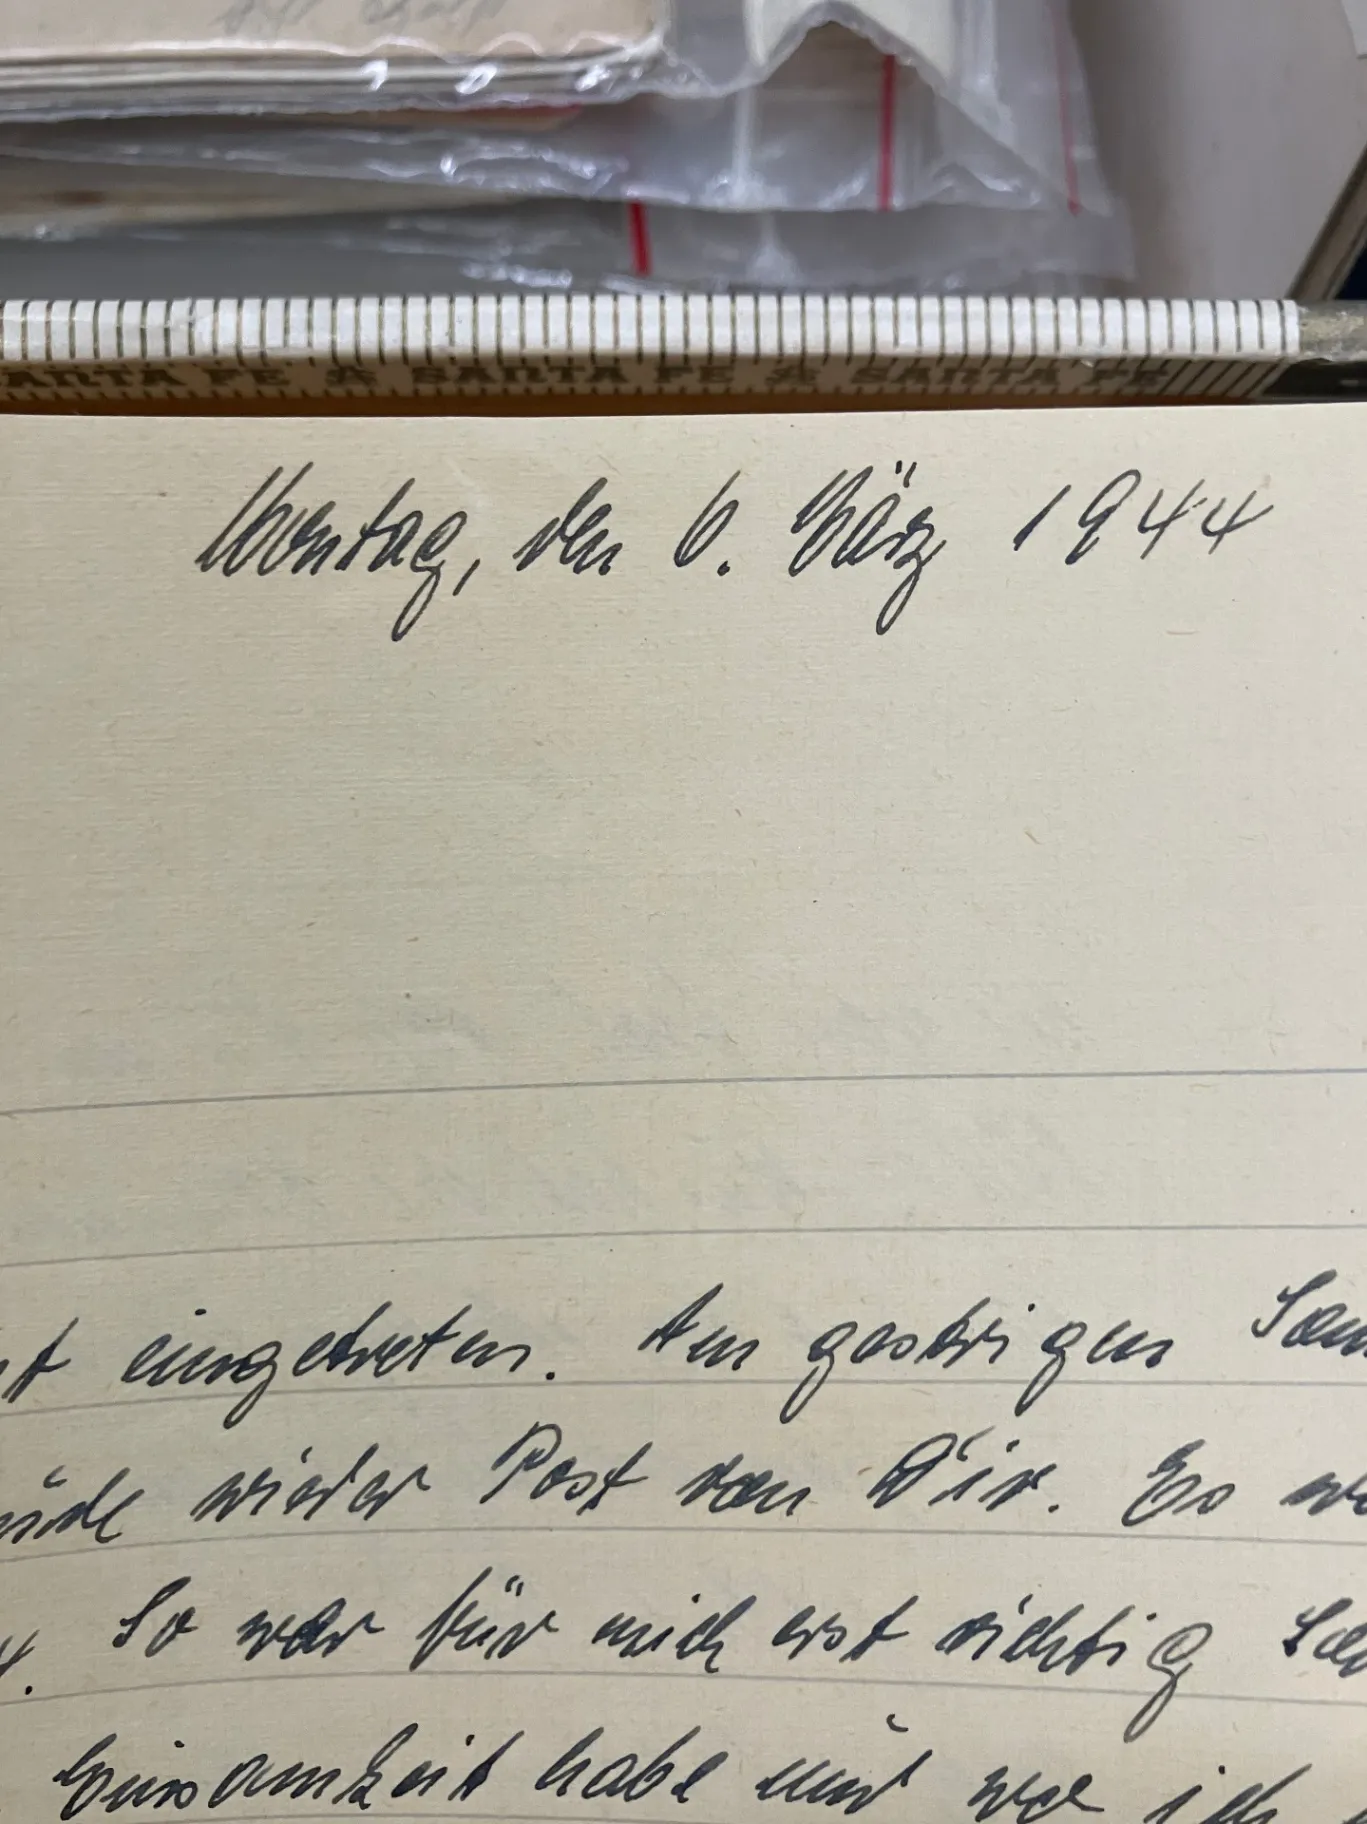 SANTA FE & SANTA FE & SANTA FE
Montag, den 6. März 1944
t eingetreten. Am gestrigen
wieder Post von Dir. Es
So war für mich erst richtig
Einsamkeit habe und wo ich